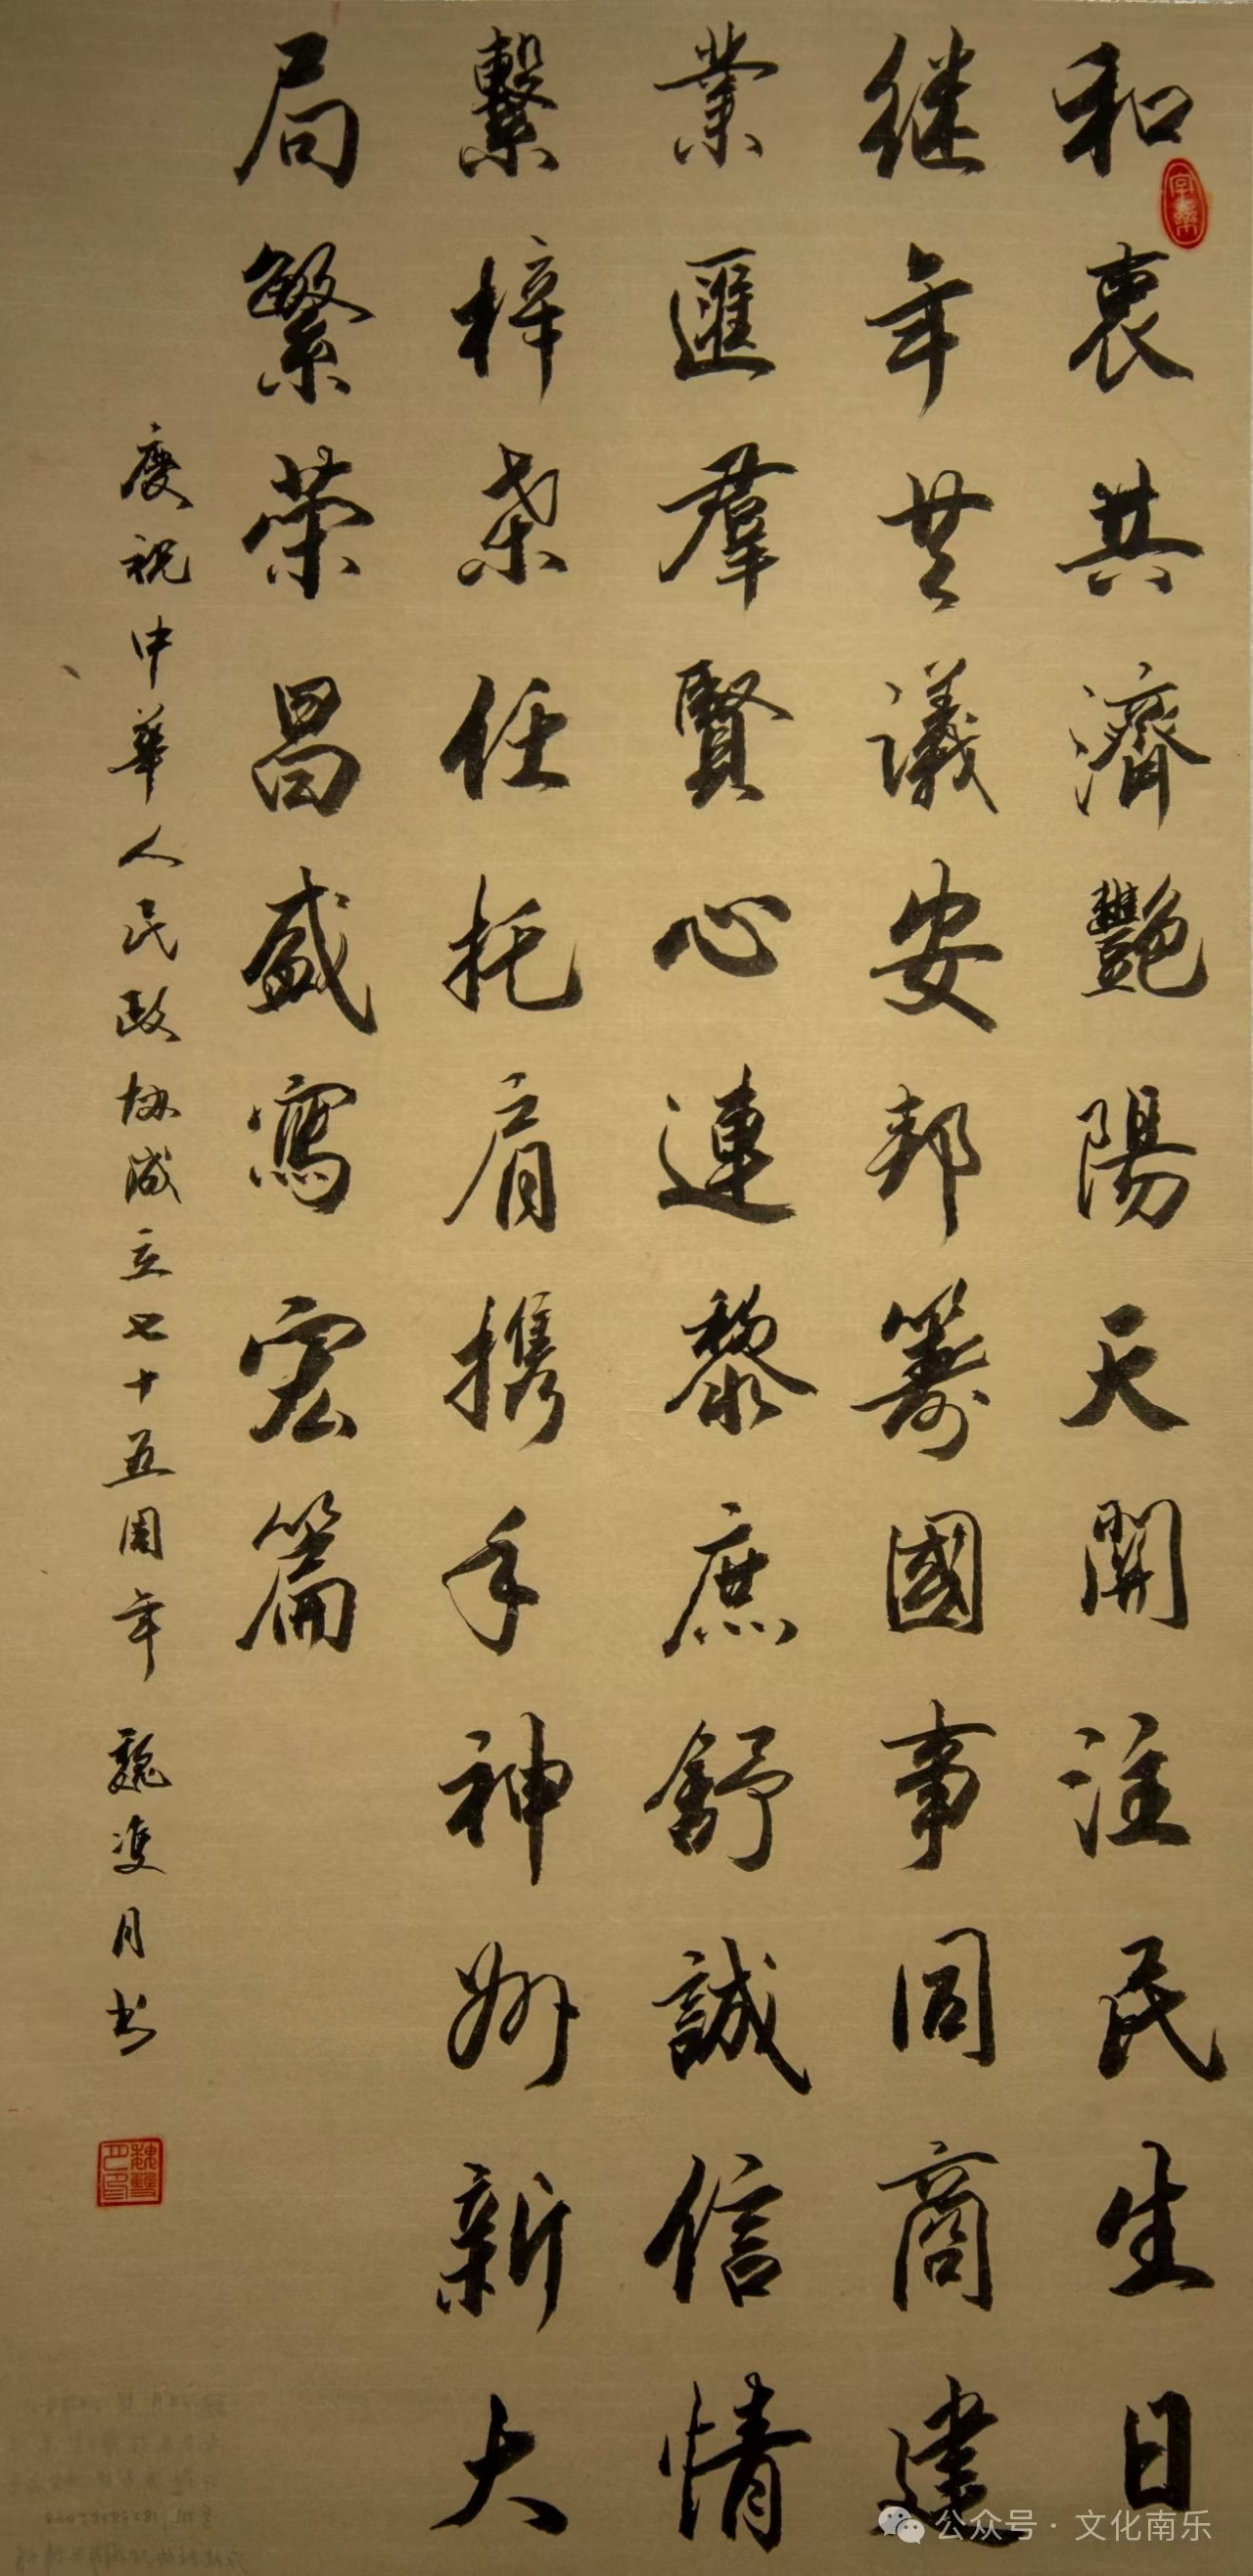 和衷共濟艷陽天開注民生日
继年共議安邦籌國事同商建
業匯羣賢心連黎庶舒誠信情
繫梓桑任托肩携手神州新大
局繁荣昌盛寫宏篇
庆祝中華人民政协成立七十五周年 魏雙月书
公众号·文化南乐